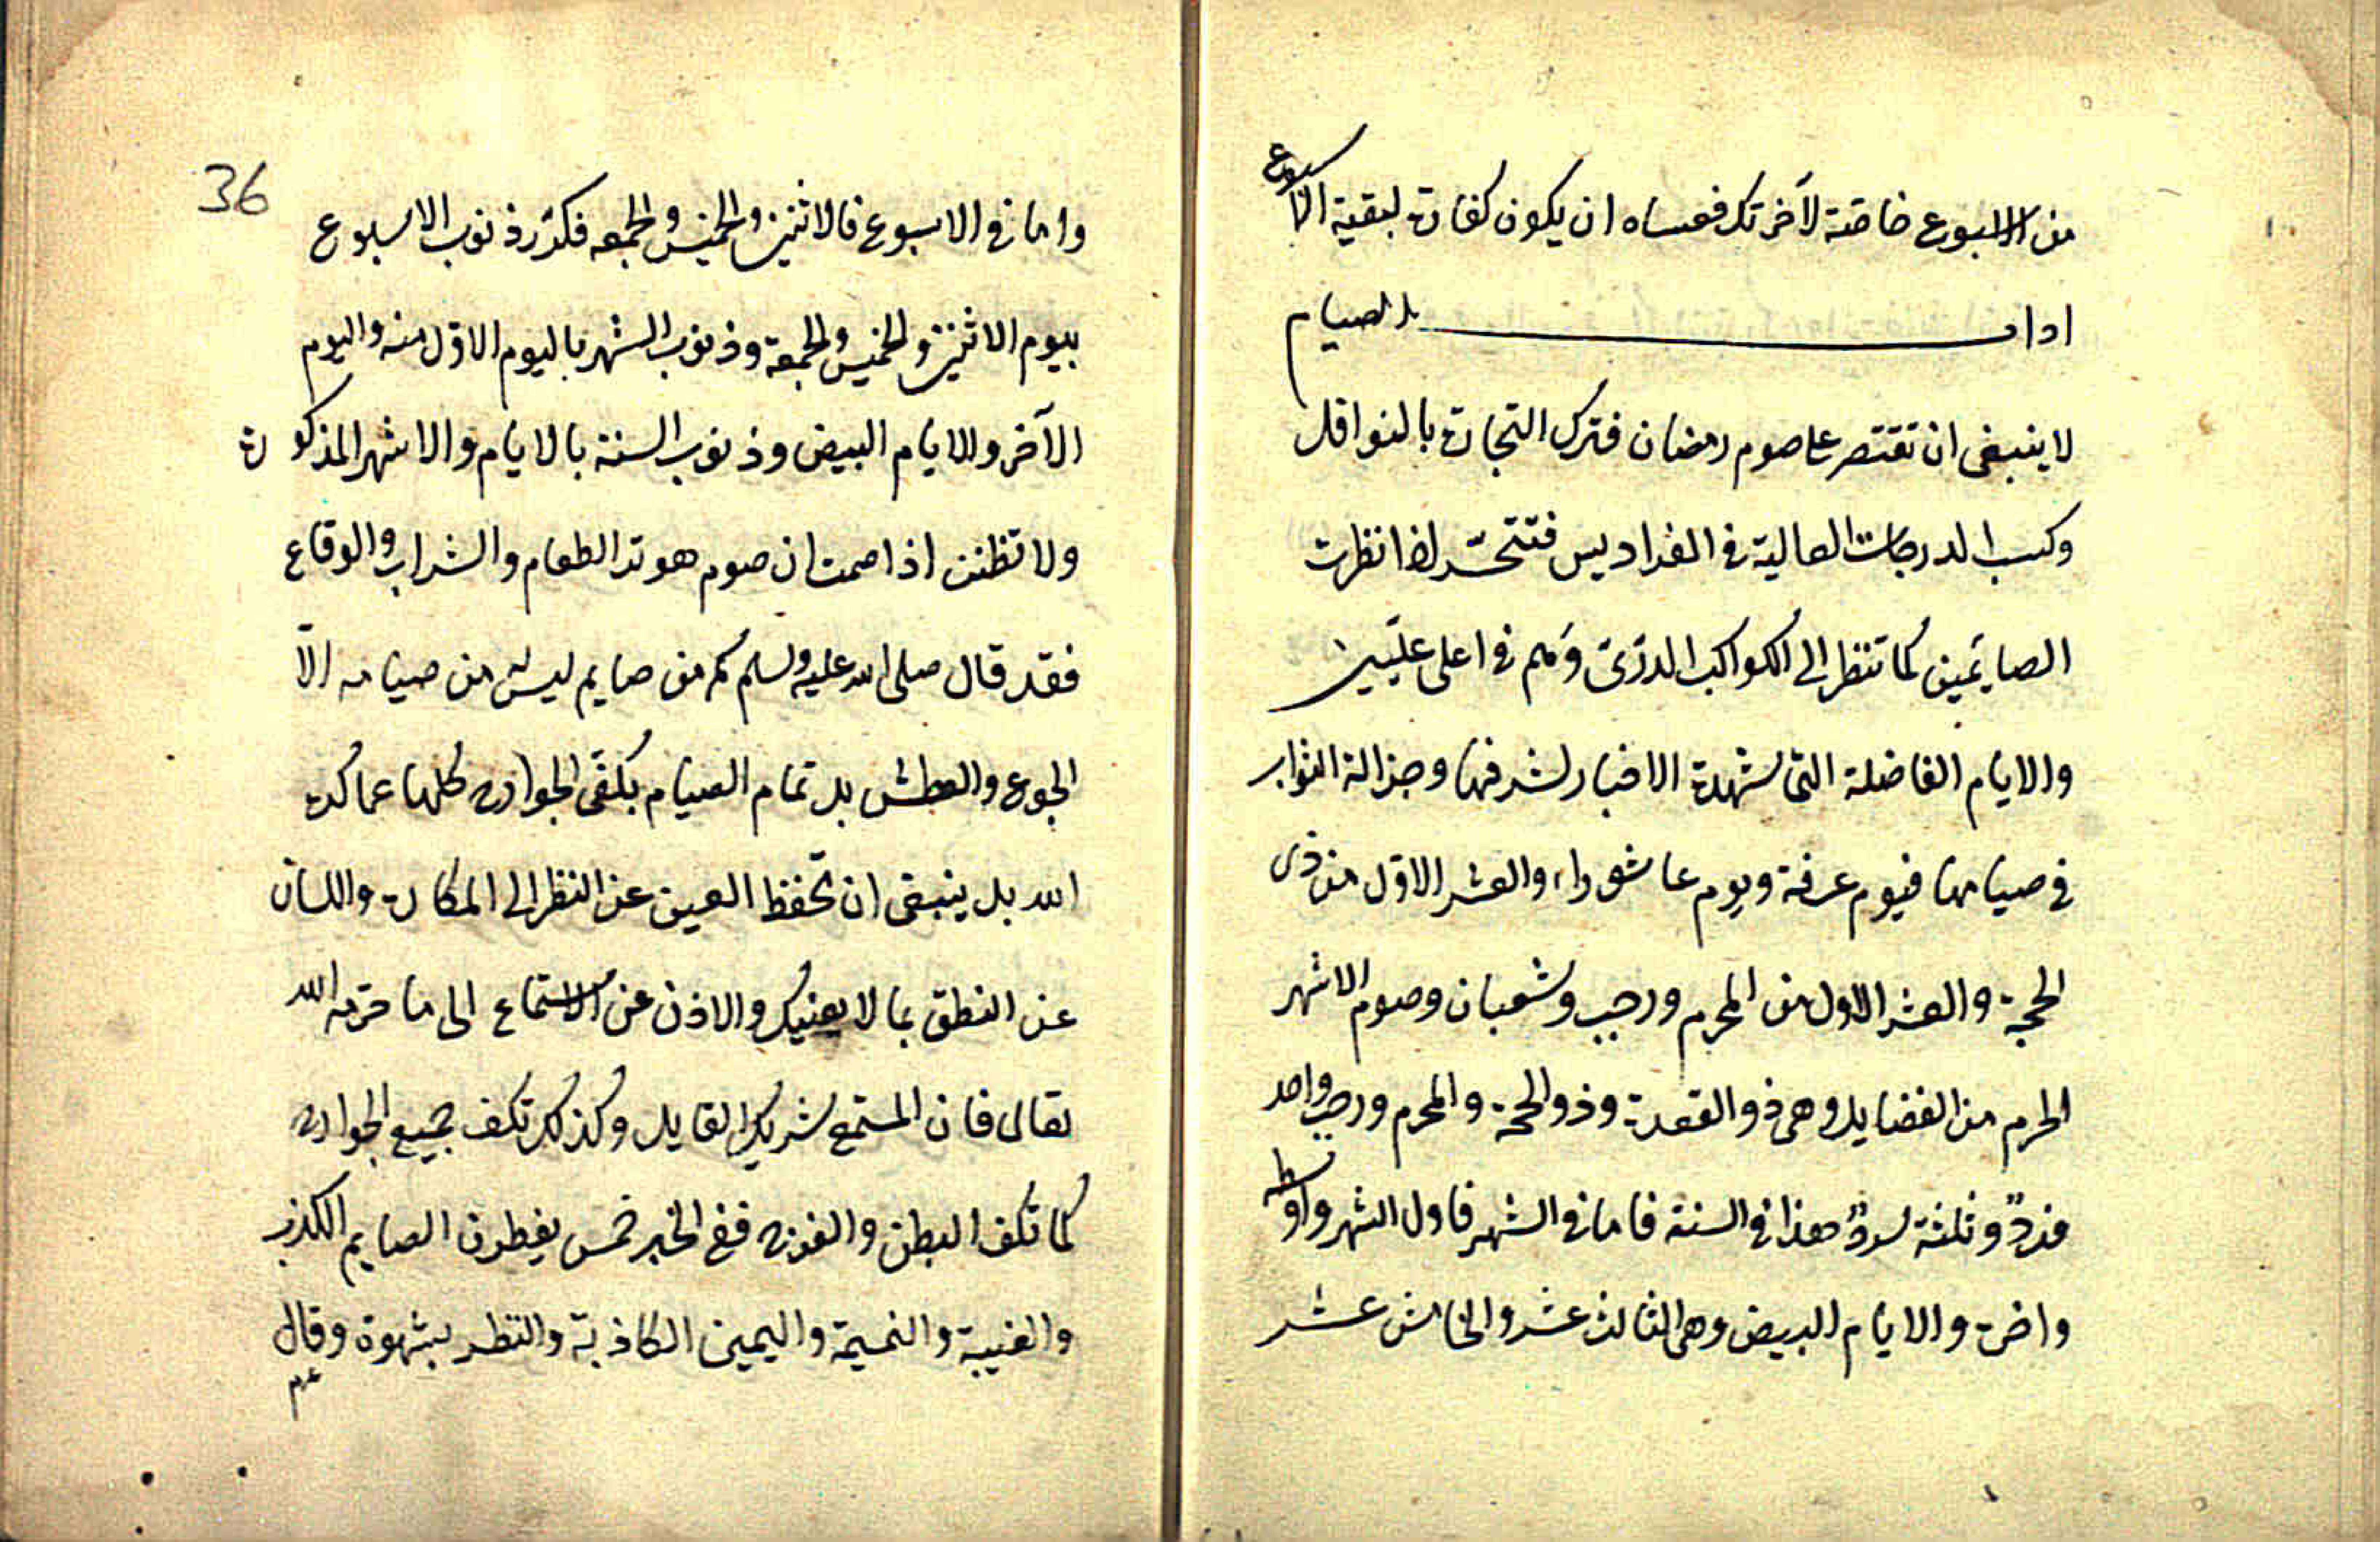 من الاسبوع خاصة لآخرتك فعساه ان يكون كفارة لبقية الاسبوع
اداب الصيام
لا ينبغى ان تقتصر على صوم رمضان فترك التجارة بالنوافل
وكسب الدرجات العالية فى الفراديس فتتحسّر اذا نظرت
الصايمين كما تنظر الى الكواكب الدرّىّ وهم فى اعلى علّيّين
والايام الفاضلة التى شهدة الاخبار لشرفها وجزالة الثواب
فى صيامها فيوم عرفة ويوم عاشوراء والعشر الاوّل من ذى
الحجة والعشر الاول من المحرم ورجب وشعبان وصوم الاشهر
الحرم من الفضايل وهى ذو القعدة وذو الحجة والمحرم ورجب واحد
فردٌ وثلثة سردٌ هذا فى السنة فاما فى الشهر فاول الشهر واوسطه
واخره والايام البيض وهى الثالث عشر والخامس عشر
36
واما فى الاسبوع فالاثنين والخميس والجمعه فكفر ذنوب الاسبوع
بيوم الاثنين والخميس والجمعة وذنوب الشهر باليوم الاوّل منه واليوم
الآخر والايام البيض وذنوب السنة بالايام والاشهر المذكورة
ولا تظنن اذا صمت ان صوم هو ترك الطعام والشراب والوقاع
فقد قال صلى الله عليه وسلم كم من صايم ليس من صيامه الّا
الجوع والعطش بل تمام الصيام بكفّ الجوارح كلها عما كره
الله بل ينبغى ان تحفظ العين عن النظر الى المكاره واللسان
عن النطق بما لا يعنيك والاذن عن الاستماع الى ما حرّمه الله
تعالى فان المستمع شريك القايل وكذلك تكف جميع الجوارح
كما تكف البطن والفرج ففى الخبر خمس يفطرن الصايم الكذب
والغيبة والنميمة واليمين الكاذبة والنظر بشهوة وقال
عم